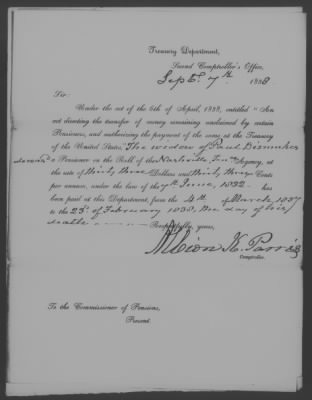 Treasury Department,
Second Comptroller's Office,
Sept. 7th 1838
Sir:
Under the act of the 6th of April, 1838, entitled "An
act directing the transfer of money remaining unclaimed by certain
Pensioners, and authorizing the payment of the same at the Treasury
of the United States," The widow of Paul
deceased a Pensioner on the Roll of the Nashville Tenn. Agency, at
the rate of thirty three Dollars and thirty three Cents
per annum, under the law of the 7th June 1832
has been paid at this Department, from the 4th of March 1837
to the 23d of February 1838, the day of his
death
Respectfully, yours,
Albion K. Parris
Comptroller.
To the Commissioner of Pensions,
Present.